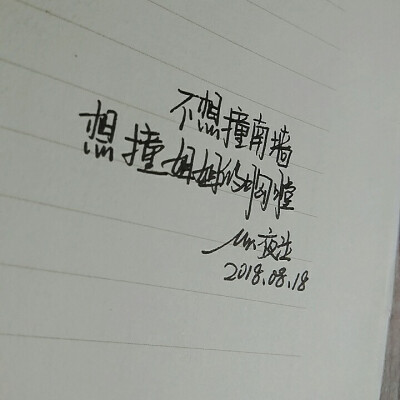 不想撞南墙
想撞妈妈的胸膛
Mr.夜泣
2018.08.18